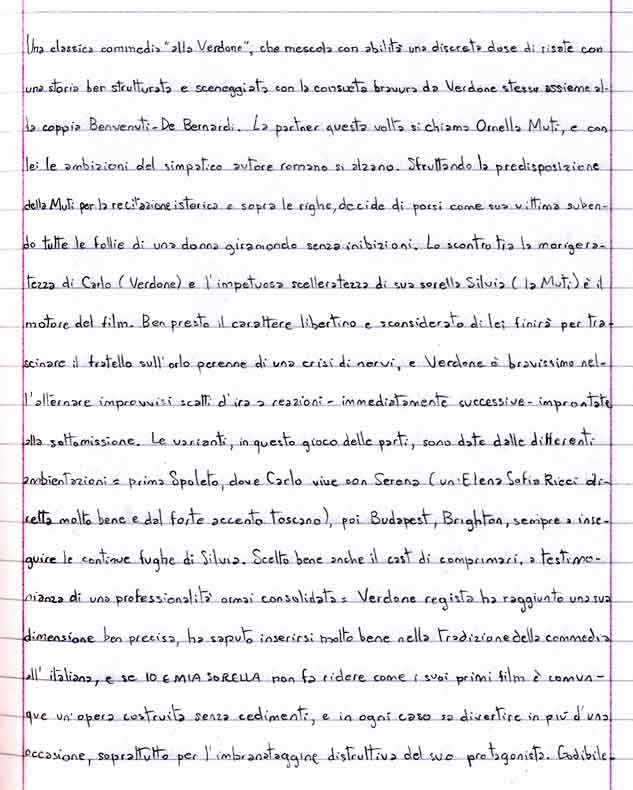 Una classica commedia "alla Verdone", che mescola con abilità una discreta dose di risate con
una storia ben strutturata e sceneggiata con la consueta bravura da Verdone stesso assieme al-
la coppia Benvenuti-De Bernardi. La partner questa volta si chiama Ornella Muti, e con
lei le ambizioni del simpatico autore romano si alzano. Sfruttando la predisposizione
della Muti per la recitazione isterica e sopra le righe, decide di porsi come sua vittima suben-
do tutte le follie di una donna giramondo senza inibizioni. Lo scontro tra la morigera-
tezza di Carlo (Verdone) e l'impetuosa scelleratezza di sua sorella Silvia (la Muti) è il
motore del film. Ben presto il carattere libertino e sconsiderato di lei finirà per tra-
scinare il fratello sull'orlo perenne di una crisi di nervi, e Verdone è bravissimo nel-
l'alternare improvvisi scatti d'ira a reazioni - immediatamente successive - improntate
alla sottomissione. Le varianti, in questo gioco delle parti, sono date dalle differenti
ambientazioni: prima Spoleto, dove Carlo vive con Serena (un'Elena Sofia Ricci di-
retta molto bene e dal forte accento toscano), poi Budapest, Brighton, sempre a inse-
guire le continue fughe di Silvia. Scelto bene anche il cast di comprimari, a testimo-
nianza di una professionalità ormai consolidata: Verdone regista ha raggiunto una sua
dimensione ben precisa, ha saputo inserirsi molto bene nella tradizione della commedia
all'italiana, e se IO E MIA SORELLA non fa ridere come i suoi primi film è comun-
que un'opera costruita senza cedimenti, e in ogni caso sa divertire in più d'una
occasione, soprattutto per l'imbranataggine distruttiva del suo protagonista. Godibile.